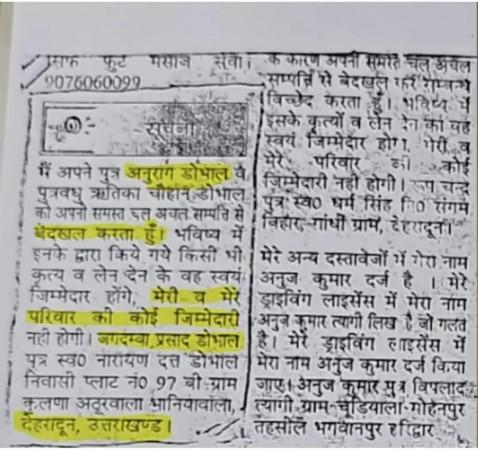 सिर्फ फुट मसाज सेवा।
9076060099
सूचना
मैं अपने पुत्र अनुराग डोभाल व
पुत्रवधु ऋतिका चौहान डोभाल
को अपनी समस्त चल अचल सम्पति से
बेदखल करता हूँ। भविष्य में
इनके द्वारा किये गये किसी भी
कृत्य व लेन देन के वह स्वयं
जिम्मेदार होंगे, मेरी व मेरे
परिवार की कोई जिम्मेदारी
नही होगी। जगदम्बा प्रसाद डोभाल
पुत्र स्व0 नारायण दत्त डोभाल
निवासी प्लाट नं0 97 बी ग्राम
कुलणा अठूरवाला भानियावाला,
देहरादून, उत्तराखण्ड।
के कारण अपनी समस्त चल अचल
सम्पत्ति से बेदखल कर सम्बन्ध
विच्छेद करता हूँ। भविष्य में
इसके कृत्यों व लेन देन का वह
स्वयं जिम्मेदार होगा, मेरी व
मेरे परिवार की कोई
जिम्मेदारी नही होगी। रूप चन्द्र
पुत्र स्व0 धर्म सिंह नि0 संगम
विहार, गांधी ग्राम, देहरादून।
मेरे अन्य दस्तावेजों में मेरा नाम
अनुज कुमार दर्ज है । मेरे
ड्राइविंग लाइसेंस में मेरा नाम
अनुज कुमार त्यागी लिख है जो गलत
है। मेरे ड्राइविंग लाइसेंस में
मेरा नाम अनुज कुमार दर्ज किया
जाए। अनुज कुमार पुत्र विपलाद
त्यागी ग्राम-चुडियाला-मोहनपुर
तहसील भगवानपुर हरिद्वार